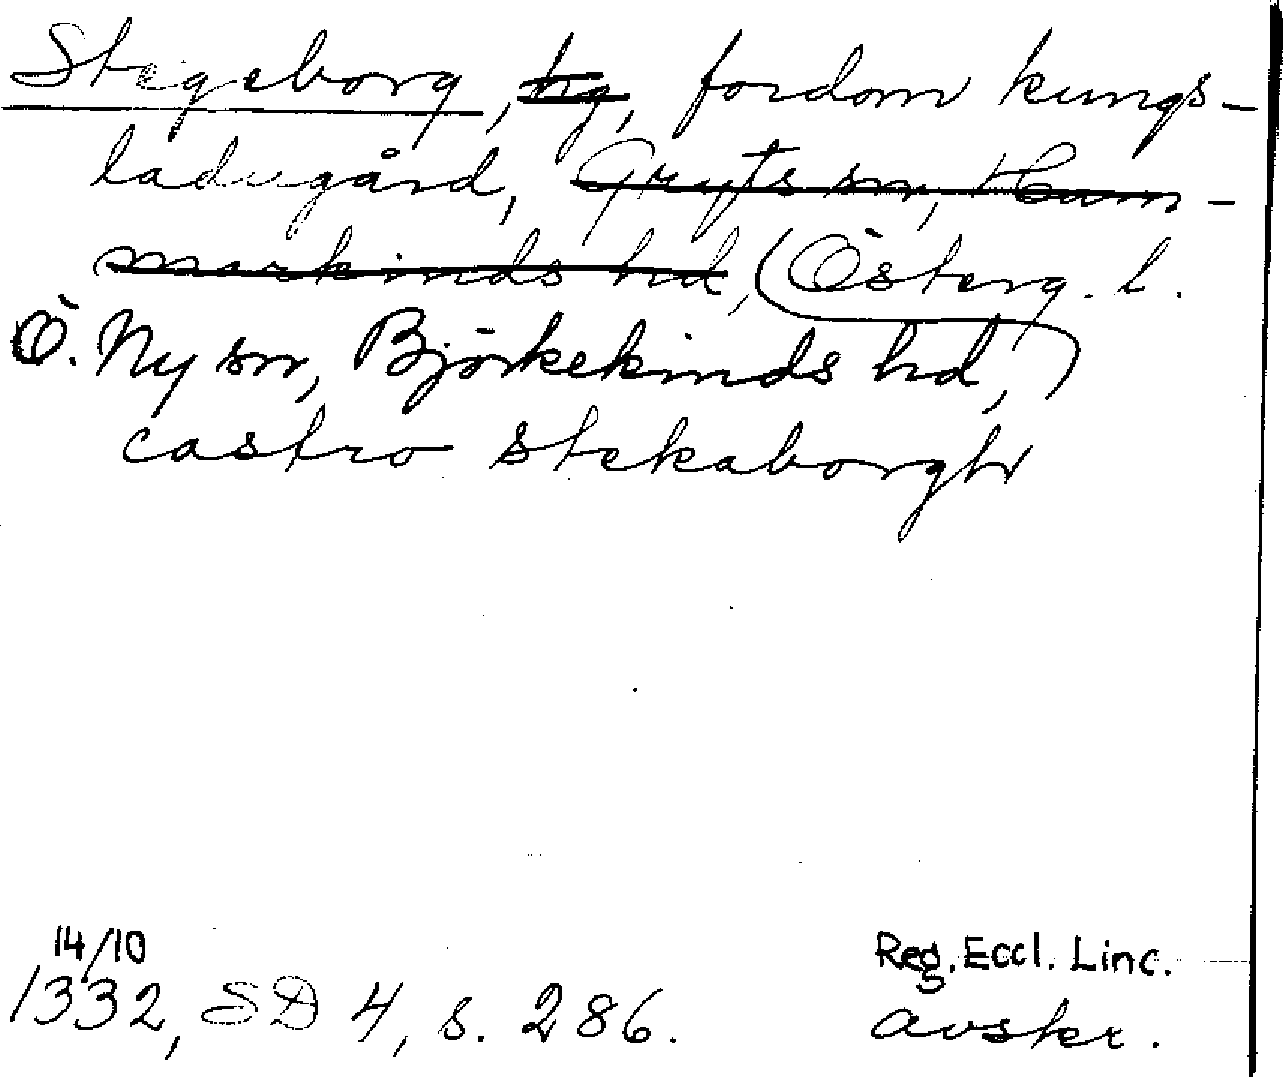 Stegeborg, hg, fordom kungs-
ladugård, Gryts sn, Ham-
markinds hd, (Österg. l.
Ö. Ny sn, Björkekinds hd,)
castro stekaborgh
14/10
1332, SD 4, s. 286.
Reg. Eccl. Linc.
avskr.